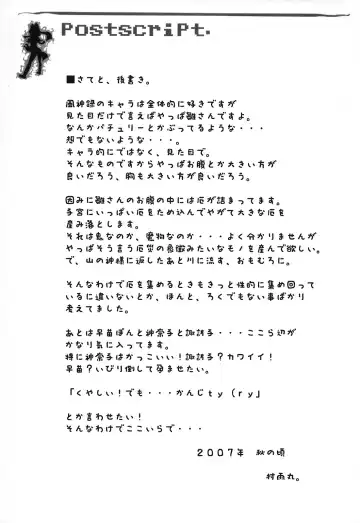 Postscript.
■さてと、後書き。
風神録のキャラは全体的に好きですが
見た目だけで言えばやっぱ雛さんですよ。
なんかパチュリーとかぶってるような・・・
想でもないような・・・。
キャラ的にではなく、見た目で。
そんなものですからやっぱお腹とか大きい方が
良いだろう、胸も大きい方が良いだろう。
因みに雛さんのお腹の中には厄が詰まってます。
子宮にいっぱい厄をため込んでやがて大きな厄を
産み落とします。
それは鬼なのか、魔物なのか・・・よく分かりませんが
やっぱそう言う厄災の意識みたいなモノを産んで欲しい。
で、山の神様に返したあと川に流す、おもむろに。
そんなわけで厄を集めるときもきっと性的に集め回って
いるに違いないとか、ほんと、ろくでもない事ばかり
考えてました。
あとは早苗ぽんと神奈子と諏訪子・・・ここら辺が
かなり気に入ってます。
特に神奈子はかっこいい！諏訪子？カワイイ！
早苗？いびり倒して孕ませたい。
「くやしい！でも・・・かんじty（ry」
とか言わせたい！
そんなわけでここいらで・・・
２００７年　秋の頃
村雨丸。